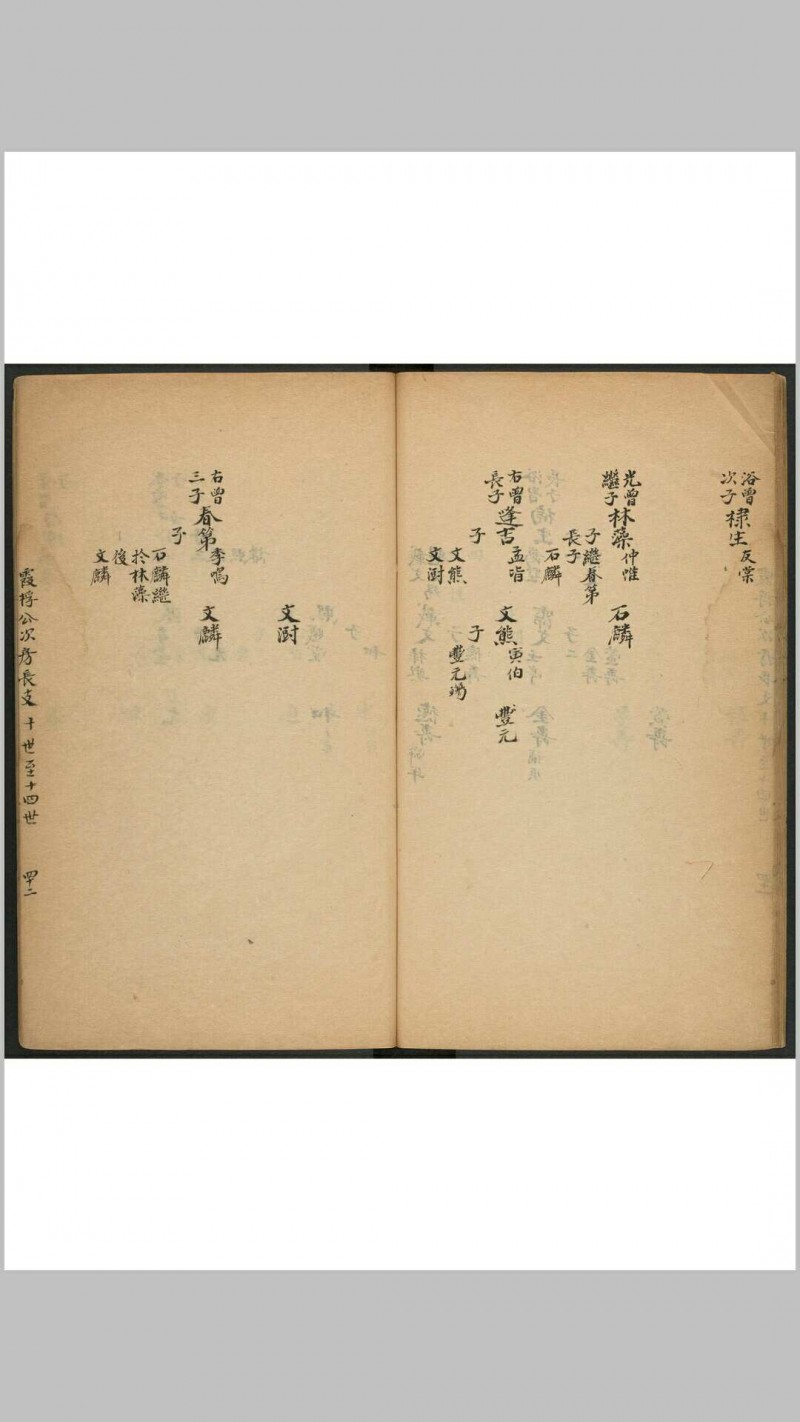 浴曾
次子
棣生
反棠
光曾
繼子
林藻
仲惟
子繼春第
長子
石麟
石麟
右曾
長子
逢吉
孟
子
文熊
文澍
文熊
寅伯
子
豐元
豐元
文澍
右曾
三子
春第
季鳴
子
石麟繼
於林藻
後
文麟
文麟
霞桴公次房長支 十世至十四世 四十二